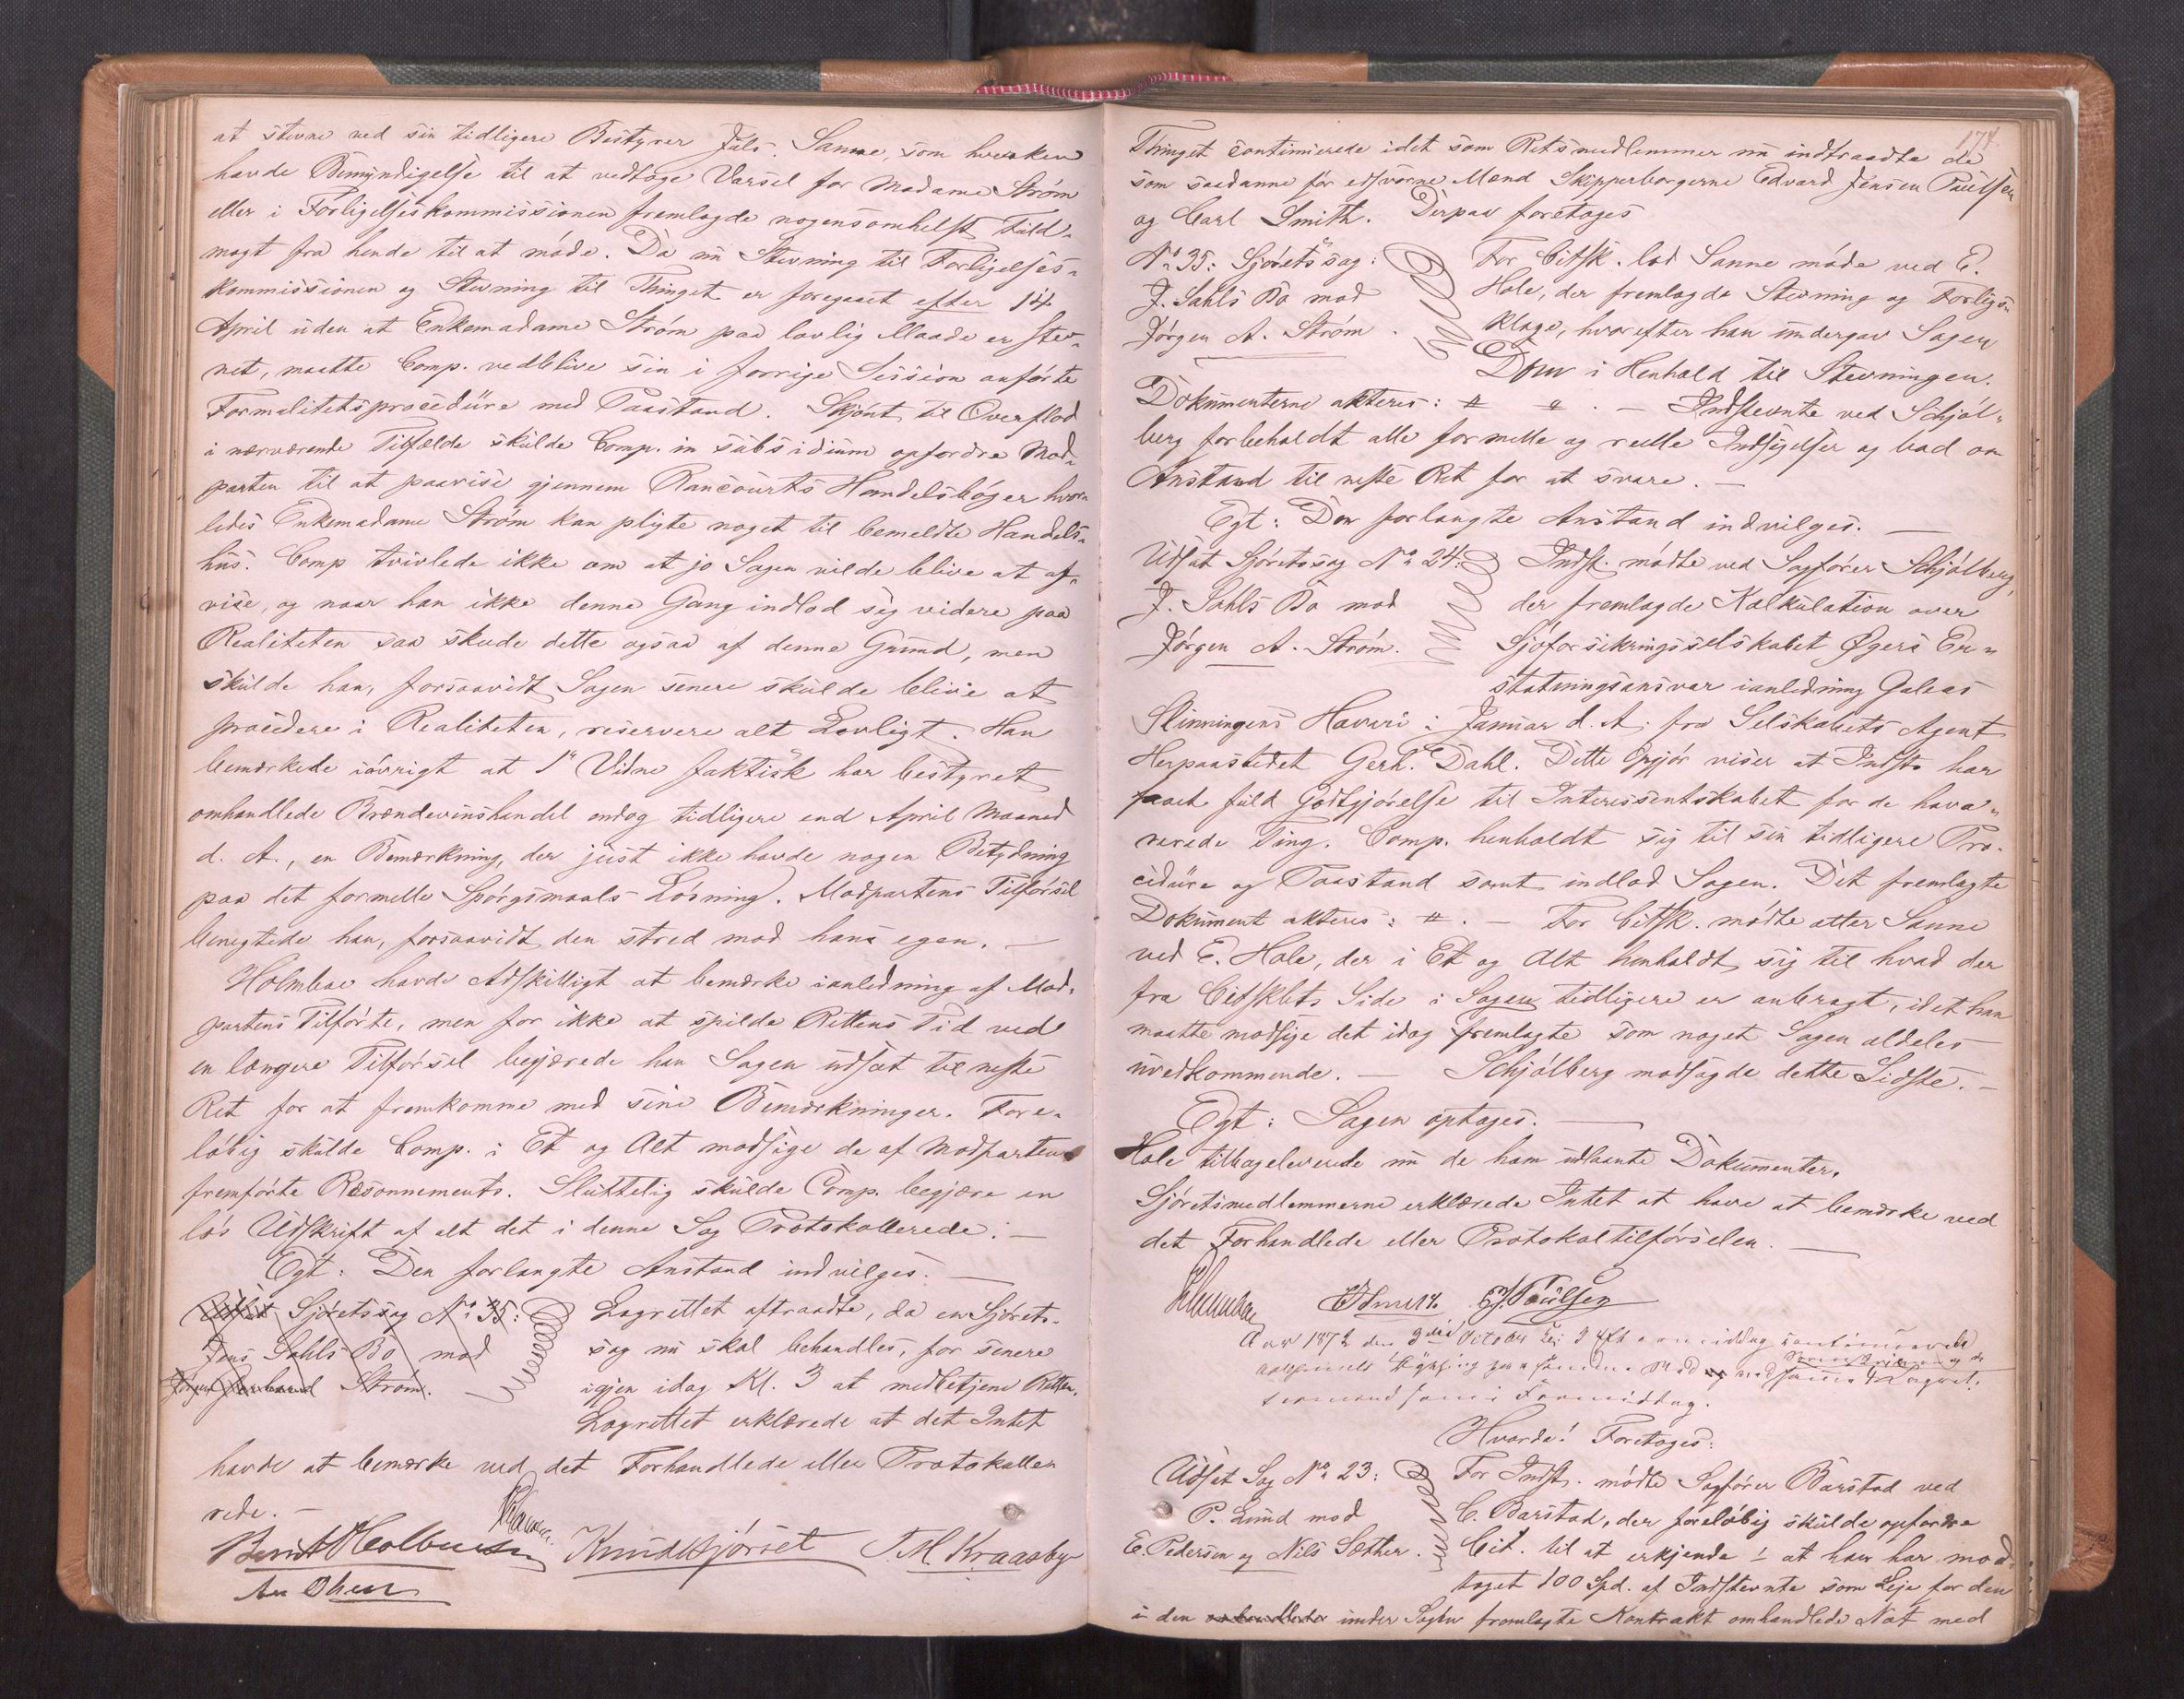 at stevne ved sin tidligere Bestyrer Juls. Sanne, som hverken
havde Bemyndigelse til at vedtage Varsel for Madame Strøm
eller i Forligelseskommissionen fremlagde nogensomhelst Fuld-
magt fra hende til at møde. Da nu Stevning til Forligelses-
kommissionen og Stevning til Thinget er foregaaet efter 14
April uden at Enkemadame Strøm paa lovlig Maade er stev-
net, maatte Comp. vedblive sin i forrige Session anførte
Formalitetsprocedüre med Paastand. Skjønt til Overflod
i nærværende Tilfælde skulde Comp. in subsidium opfordre Mod-
parten til at paavise gjennem Rancourts Handelsbøger hvor-
ledes Enkemadame Strøm kan pligte noget til bemeldte Handels-
hus. Comp tvivlede ikke om at jo Sagen vilde blive at af-
vise, og naar han ikke denne Gang indlod sig videre paa
Realiteten saa skede dette ogsaa af denne Grund, men
skulde han, forsaavidt Sagen senere skulde blive at
procedere i Realiteten, reservere alt Lovligt. Han
bemærkede iøvrigt at 1ste Vidne faktisk har bestyret
omhandlede Brændevinshandel endog tidligere end April Maaned
d. A., en Bemærkning, der just ikke havde nogen Betydning
paa det formelle Spørgsmaals Løsning. Modpartens Tilførsel
benegtede han, forsaavidt den stred mod hans egen. —
Holmboe havde Adskilligt at bemærke ianledning af Mod-
partens Tilførte, men for ikke at spilde Rettens Tid ved
en længere Tilførsel begjærede han Sagen udsat til neste
Ret for at fremkomme med sine Bemærkninger. Fore-
løbig skulde Comp. i Et og Alt modsige de af Modparten
fremførte Ræsonnements. Sluttelig skulde Comp. begjære en
løs Udskrift af alt det i denne Sag Protokollerede: —
Egt: Den forlangte Anstand indvilges. —
Sjøretssag No 35: Lagrettet aftraadte, da en Sjørets-
Jens Sahls Bo mod sag nu skal behandles, for senere
Strøm. igjen idag Kl. 3 at medbetjene Retten.
Lagrettet erklærede at det Intet
havde at bemærke ved det Forhandlede eller Protokolle-
rede. —
Knud Kjørset T. M. Kraasbye
174.
Thinget continuerede idet som Retsmedlemmer nu indtraadte de
som saadanne før edsvorne Mænd Skipperborgerne Edvard Jensen Paulsen
og Carl Smith. Derpaa foretages
No 35: Sjøretssag: For Citsk. lod Sanne møde ved E.
J. Sahls Bo mod Hole, der fremlagde Stevning og Forligs-
Jørgen A. Strøm. klage, hvorefter han undergav Sagen
Dom i Henhold til Stevningen.
Dokumenterne akteres: # " . — Indstevnte ved Schjøl-
berg forbeholdt alle formelle og reelle Indsigelser og bad om
Anstand til neste Ret for at svare. —
Egt: Den forlangte Anstand indvilges. —
Udsat Sjøretssag No 24: Indst. mødte ved Sagfører Schjølberg,
J. Sahls Bo mod der fremlagde Kalkulation over
Jørgen A. Strøm. Sjøforsikringsselskabet Øgers Er-
statningsansvar ianledning Galeas
Slinningens Havari i Januar d. A. fra Selskabets Agent
Herpaastedet Gerh. Dahl. Dette Opgjør viser at Indst. har
faaet fuld Godtgjørelse til Interessentskabet for de hava-
rerede Ting. Comp. henholdt sig til sin tidligere Pro-
cedure og Paastand samt indlod Sagen. Det fremlagte
Dokument akteres: #. — For Citsk. mødte atter Sanne
ved E. Hole, der i Et og Alt henholdt sig til hvad der
fra Citskbts Side i Sagen tidligere er anbragt, idet han
maatte modsige det idag fremlagte som noget Sagen aldeles
uvedkommende. — Schjølberg modsagde dette Sidste. —
Egt: Sagen optages. —
Hole tilbageleverede nu de ham udlaante Dokumenter.
Sjøretsmedlemmerne erklærede Intet at have at bemærke ved
det Forhandlede eller Protokoltilførselen. —
C Smith. E. J. Paulsen
Aar 1872 den 3die October Kl 3 Eftermiddag continuerede
samme Sted og med samme Lagret-
temænd som i Formiddag.
Hvorda! Foretoges:
Udsat Sag No 23: For Indst. mødte Sagfører Barstad ved
P. Lund mod C. Barstad, der foreløbig skulde opfordre
E. Pedersen og Nils Sæther. Cit. til at erkjende 1 at han har mod-
taget 100 Spd. af Indstevnte som Leje for den
i den under Sagen fremlagte Kontrakt omhandlede Not med